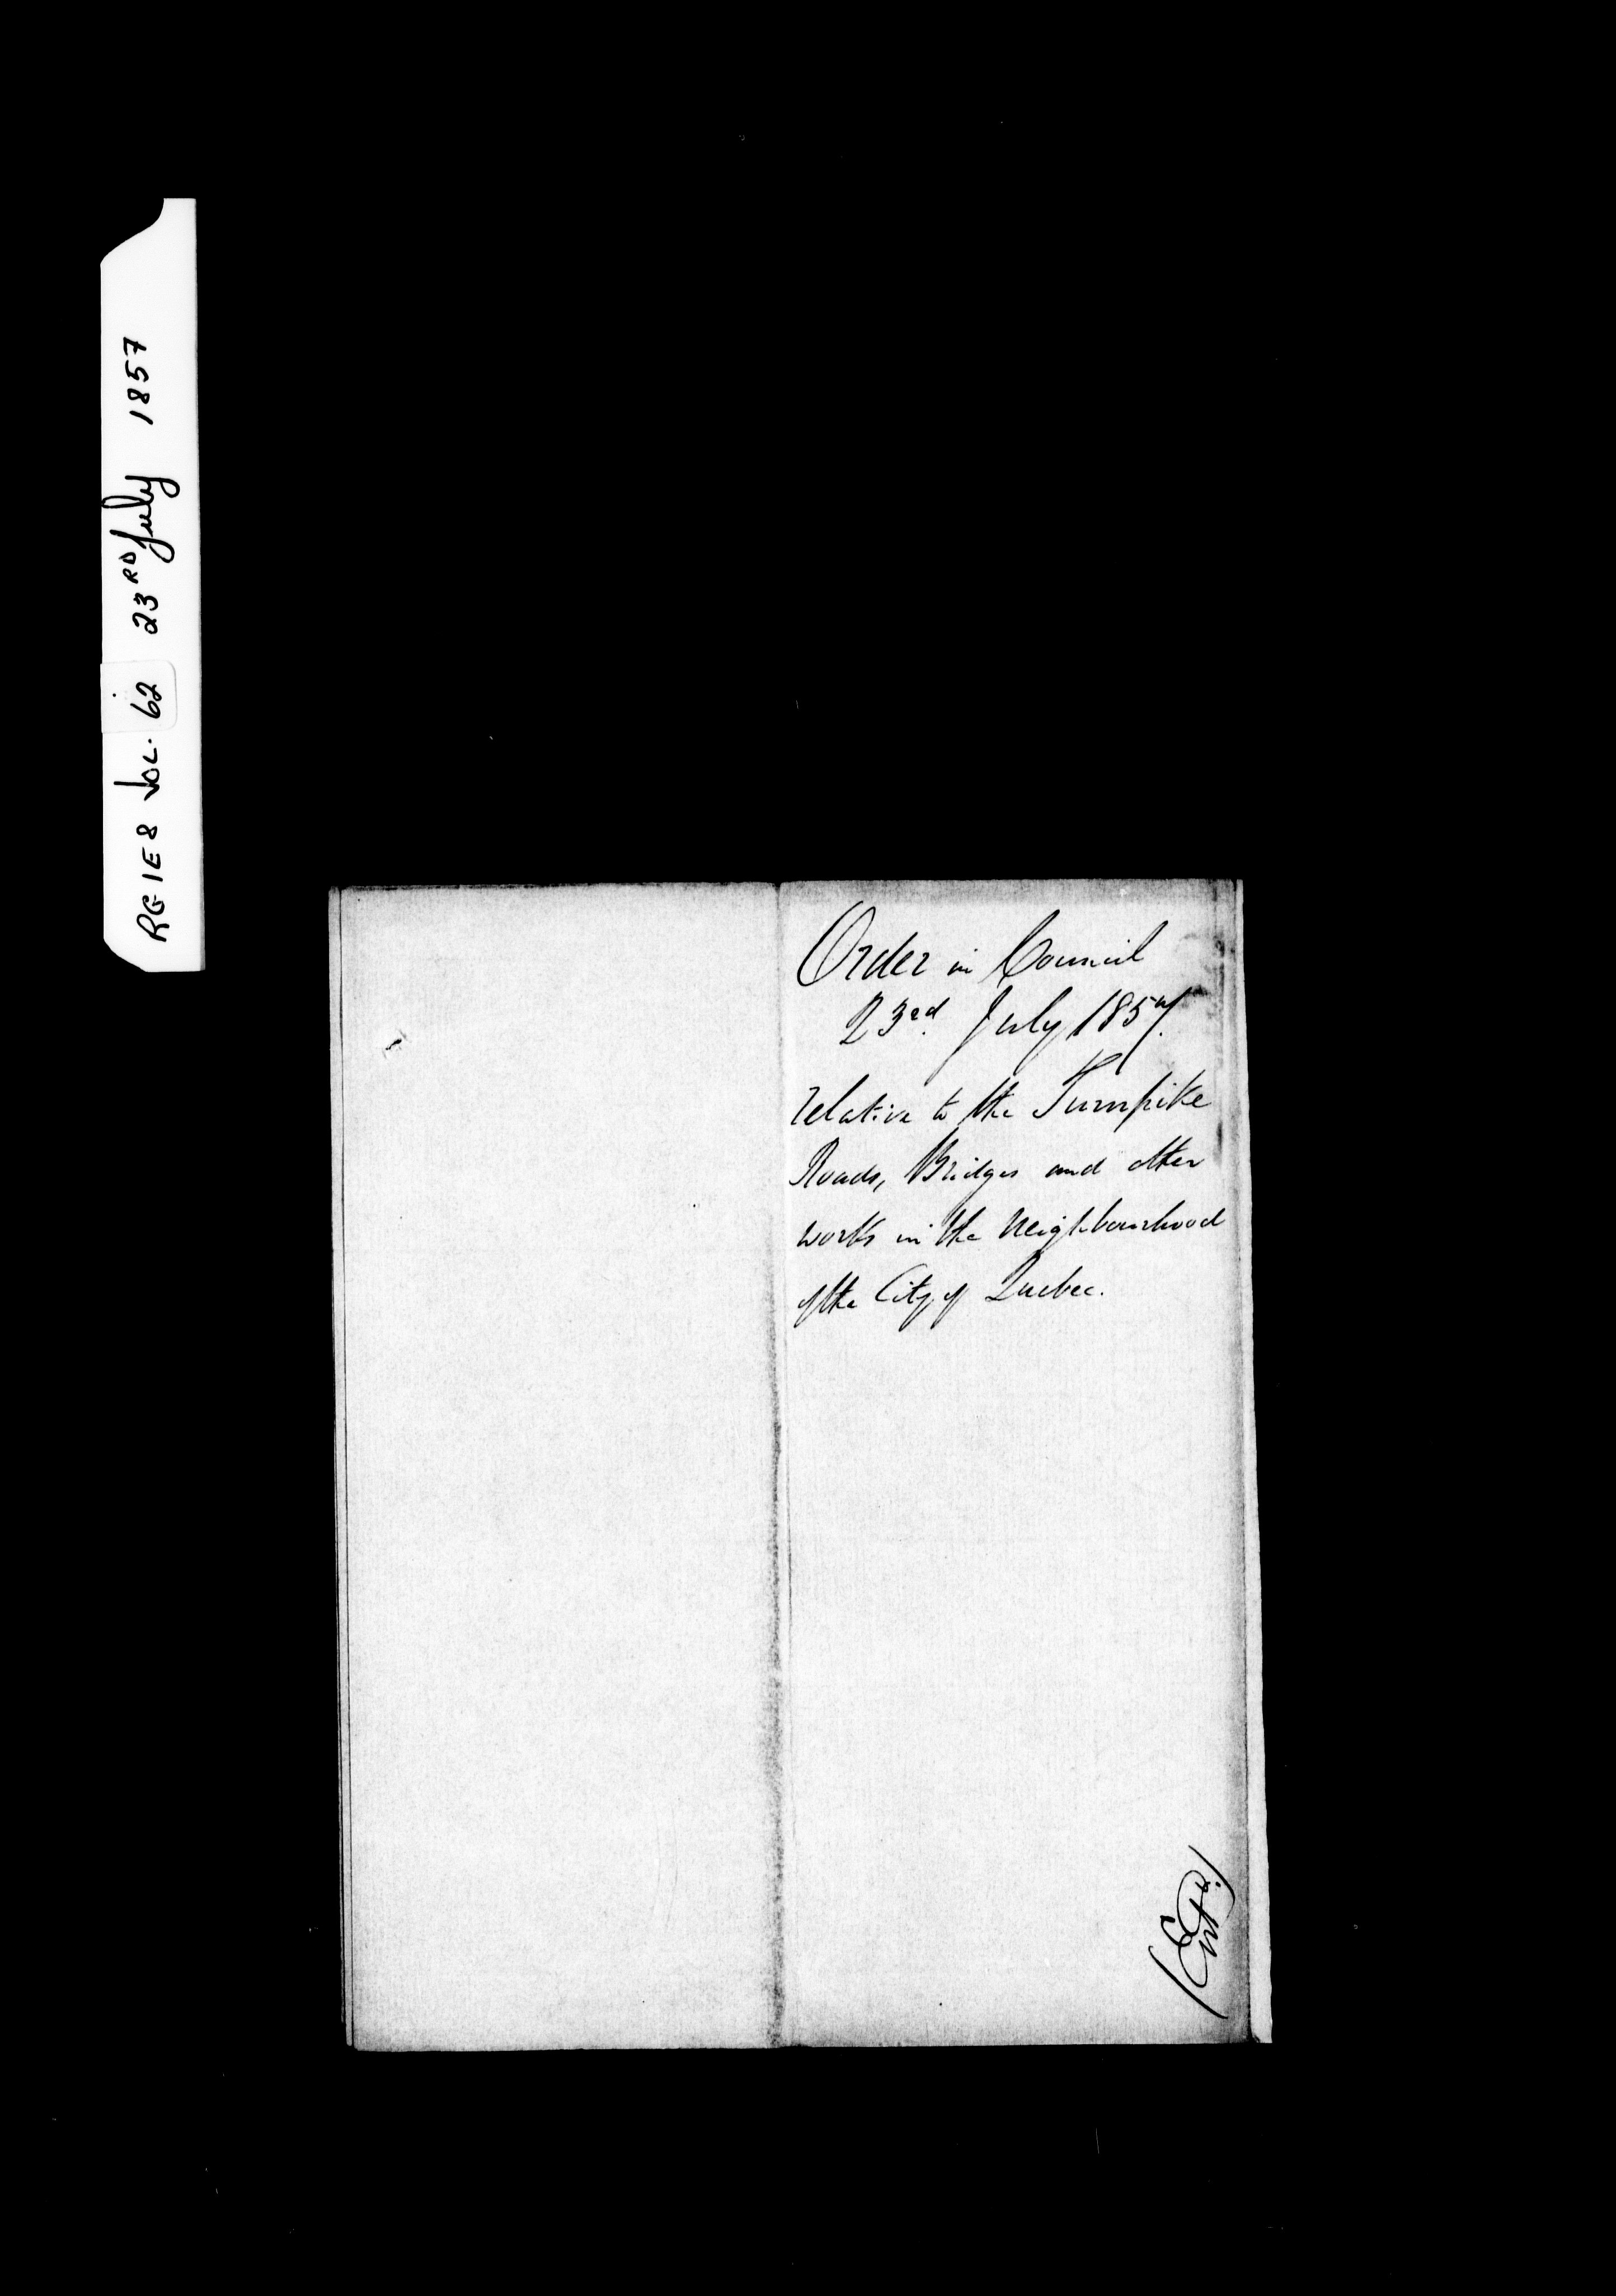 RG 1 E 8 VOL. 62 23RD July 1857
Order in Council
23rd. July 1857.
relative to the Turnpike
Roads, Bridges and other
works in the Neighbourhood
of the City of Quebec.
(Entd.)